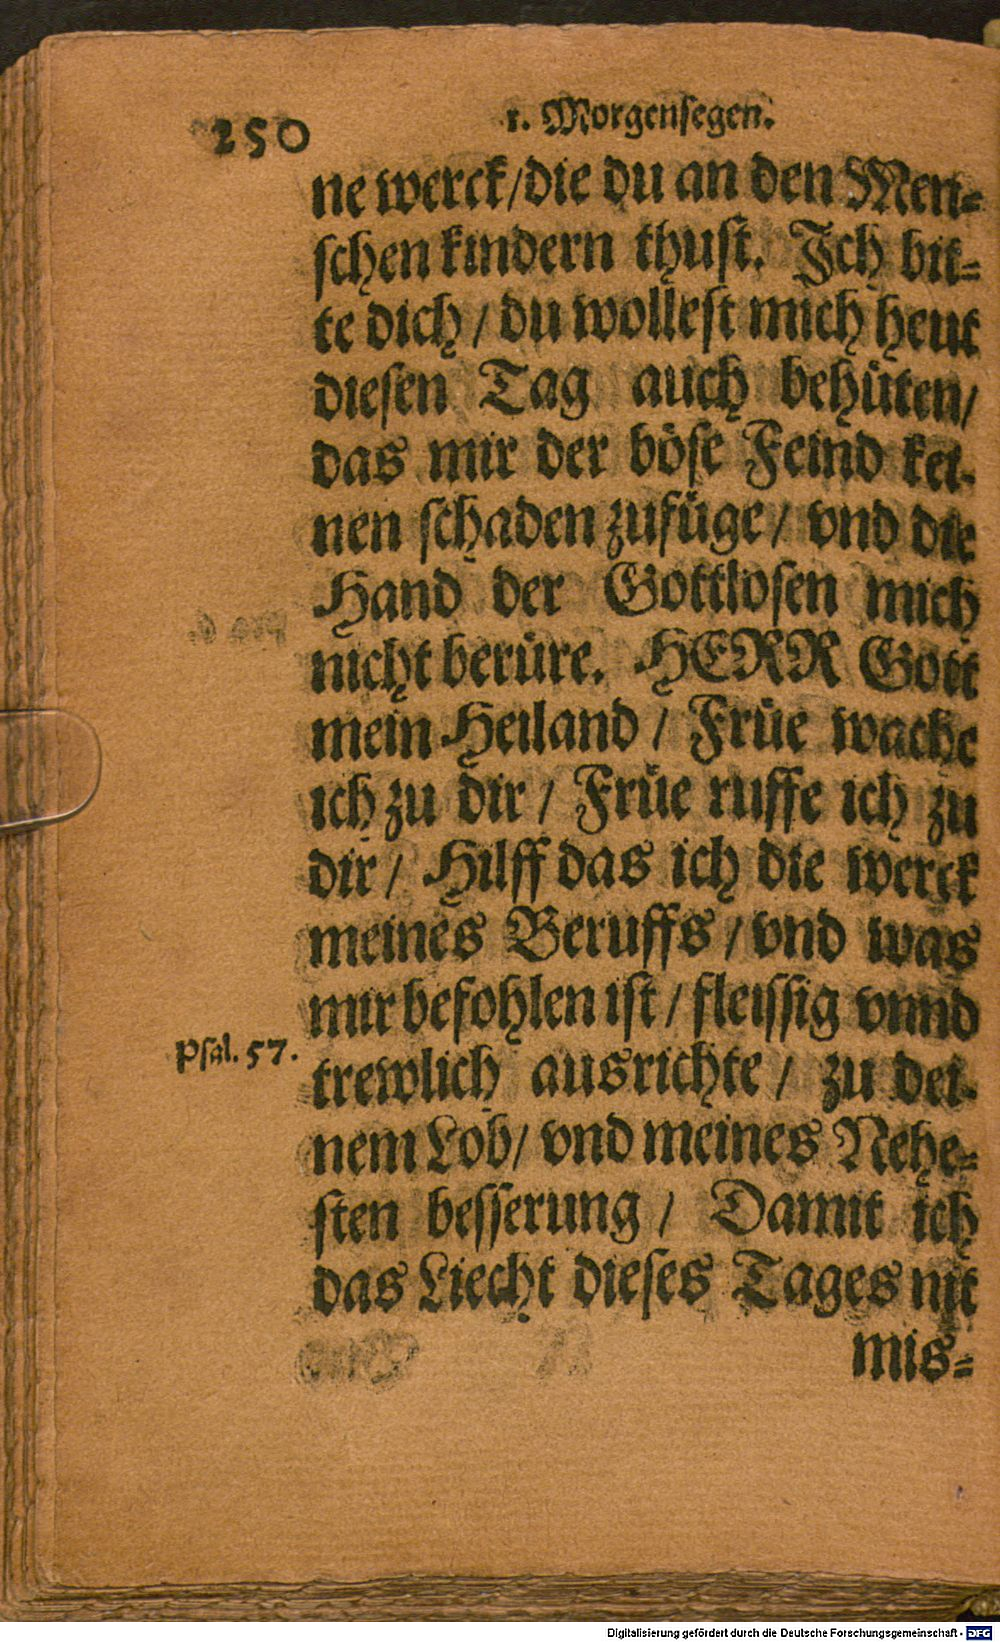 250 1. Morgensegen.
ne werck/die du an den Men-
schen kindern thust. Ich bit-
te dich/ du wollest mich heut
diesen Tag auch behüten/
das mir der böse Feind kei-
nen schaden zufüge/ vnd die
Hand der Gottlosen mich
nicht berüre. HERR Gott
mein Heiland/ Früe wache
ich zu dir/ Früe ruffe ich zu
dir/ Hilff das ich die werck
meines Beruffs/ vnd was
mir befohlen ist/ fleissig vnnd
Psal. 57. trewlich ausrichte/ zu dei-
nem Lob/ vnd meines Nehe-
sten besserung/ Damit ich
das Liecht dieses Tages nit
mis-
Digitalisierung gefördert durch die Deutsche Forschungsgemeinschaft - DFG